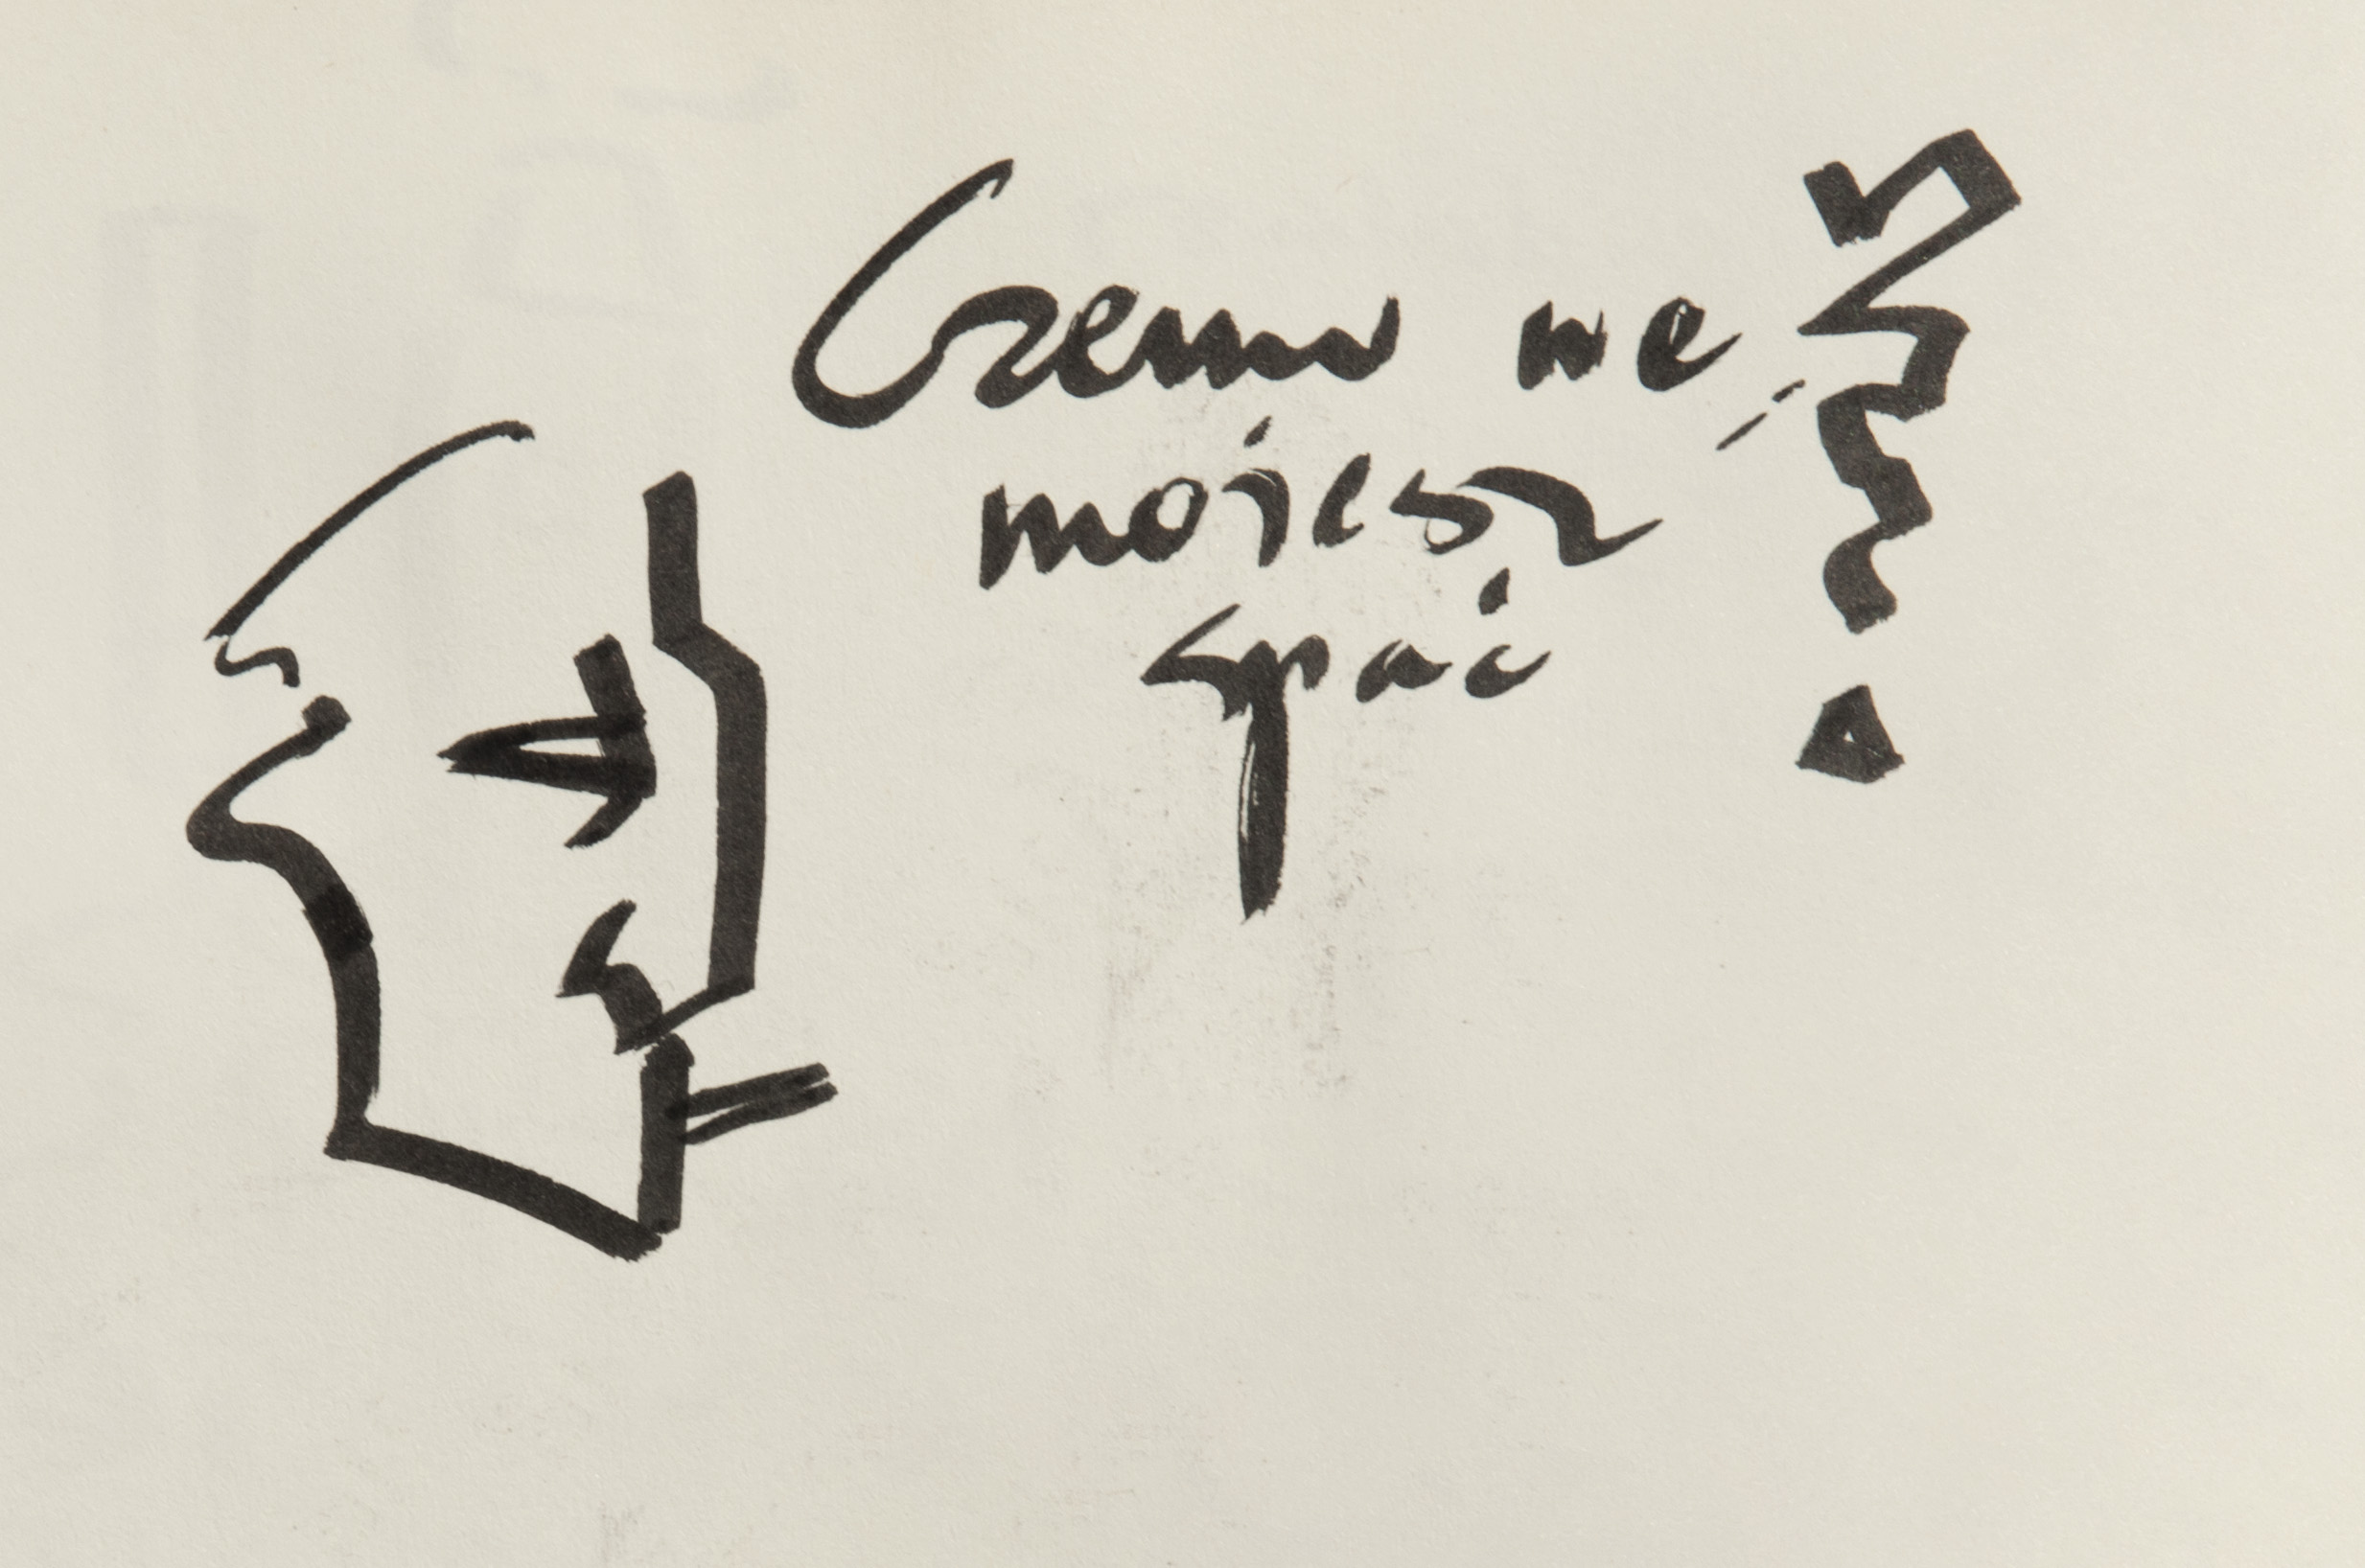 Czemu nie
możesz
spać ?